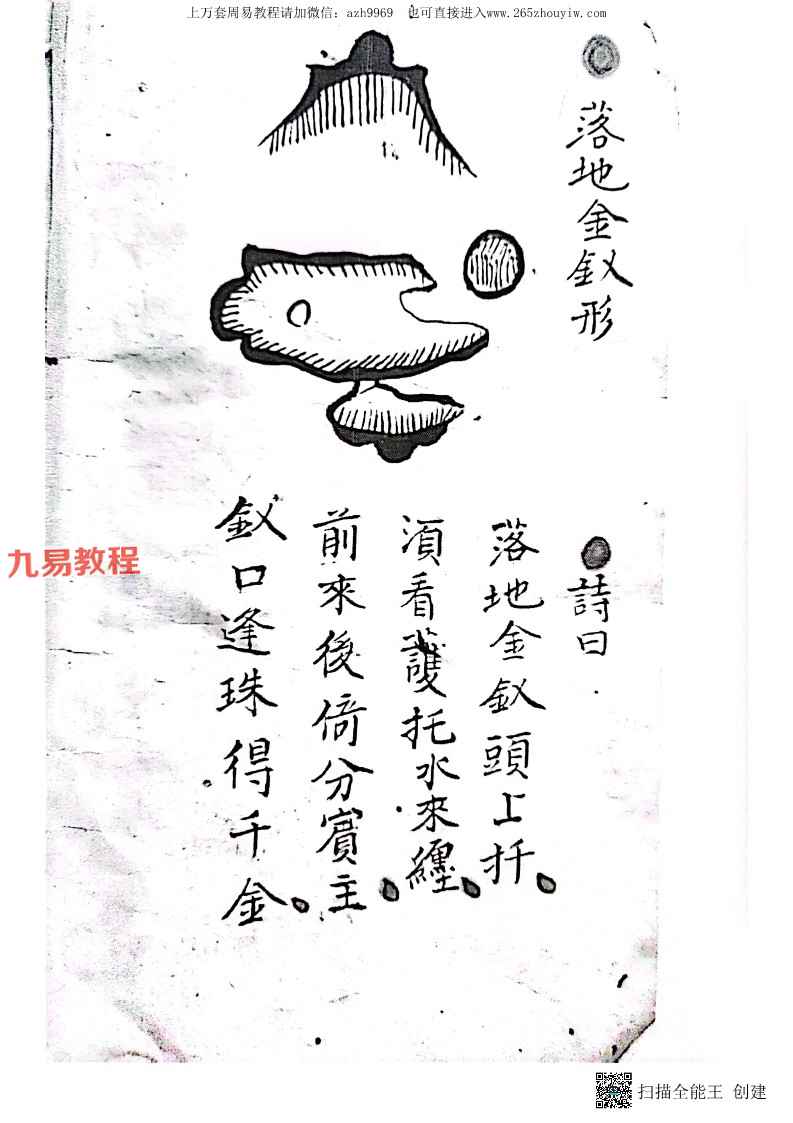 上万套周易教程请加微信：azh9969　也可直接进入www.265zhouyiw.com
落地金釵形
詩曰
落地金釵頭上扦
須看護托水來纏
前來後倚分賓主
釵口逢珠得千金
九易教程
扫描全能王 创建